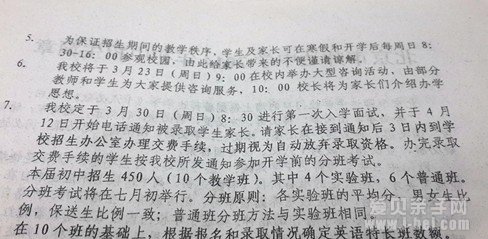 5. 为保证招生期间的教学秩序，学生及家长可在寒假和开学后每周日 8：
30-16：00 参观校园，由此给家长带来的不便谨请谅解。
6. 我校将于 3 月 23 日（周日）9：00 在校内举办大型咨询活动，由部分
教师和学生为大家提供咨询服务，10：00 校长将为家长们介绍办学
思想。
7. 我校定于 3 月 30 日（周日）8：30 进行第一次入学面试，并于 4 月
12 日开始电话通知被录取学生家长。请家长在接到通知后 3 日内到学
校招生办公室办理交费手续，过期视为自动放弃录取资格。办完录取
交费手续的学生按我校所发通知参加开学前的分班考试。
本届初中招生 450 人（10 个教学班）。其中 4 个实验班，6 个普通班。
分班考试将在七月初举行。分班原则：各实验班的平均分、男女生比
例，保送生比例一致；普通班分班方法与实验班相同。
在 10 个班的基础上，根据报名和录取情况确定英语特长班数额，